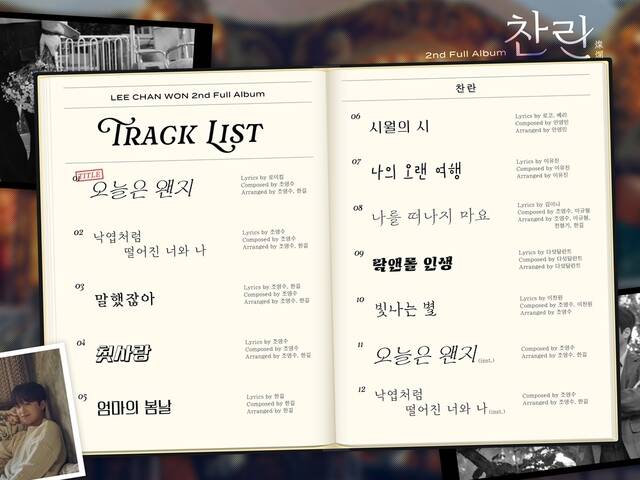 2nd Full Album 찬란 燦爛
LEE CHAN WON 2nd Full Album
TRACK LIST
TITLE
01 오늘은 왠지
Lyrics by 로이킴
Composed by 조영수
Arranged by 조영수, 한길
02 낙엽처럼
떨어진 너와 나
Lyrics by 조영수
Composed by 조영수
Arranged by 조영수, 한길
03 말했잖아
Lyrics by 조영수, 한길
Composed by 조영수, 한길
Arranged by 조영수, 한길
04 첫사랑
Lyrics by 조영수, 한길
Composed by 조영수
Arranged by 조영수, 한길
05 엄마의 봄날
Lyrics by 한길
Composed by 한길
Arranged by 한길
찬란
06 시월의 시
Lyrics by 로코, 베리
Composed by 안영민
Arranged by 안영민
07 나의 오랜 여행
Lyrics by 이유진
Composed by 이유진
Arranged by 이유진
08 나를 떠나지 마요
Lyrics by 김이나
Composed by 조영수, 이규형
Arranged by 조영수, 이규형,
한길
09 락앤롤 인생
Lyrics by 다섯달란트
Composed by 다섯달란트
Arranged by 다섯달란트
10 빛나는 별
Lyrics by 이찬원
Composed by 조영수, 이찬원
Arranged by 조영수
11 오늘은 왠지 (inst.)
Composed by 조영수
Arranged by 조영수, 한길
12 낙엽처럼
떨어진 너와 나 (inst.)
Composed by 조영수
Arranged by 조영수, 한길